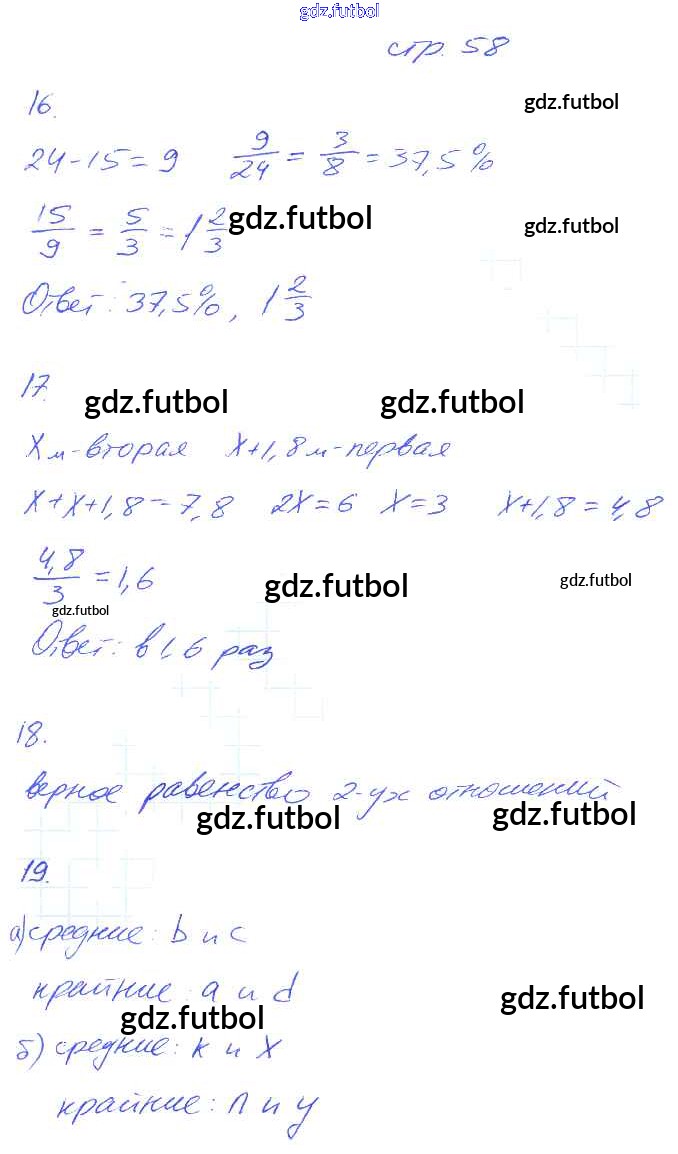 gdz.futbol
стр. 58
16.
gdz.futbol
24-15=9 9/24 = 3/8 = 37,5%
15/9 = 5/3 = 1 2/3
gdz.futbol
gdz.futbol
Ответ: 37,5%, 1 2/3
17.
gdz.futbol
gdz.futbol
Xм-вторая X+1,8м-первая
X+X+1,8=7,8 2X=6 X=3 X+1,8=4,8
4,8/3 =1,6
gdz.futbol
gdz.futbol
gdz.futbol
Ответ: в 1,6 раз
18.
верное равенство 2-ух отношений
gdz.futbol
gdz.futbol
19.
а) средние: b и c
крайние: a и d
gdz.futbol
gdz.futbol
б) средние: k и X
крайние: n и y